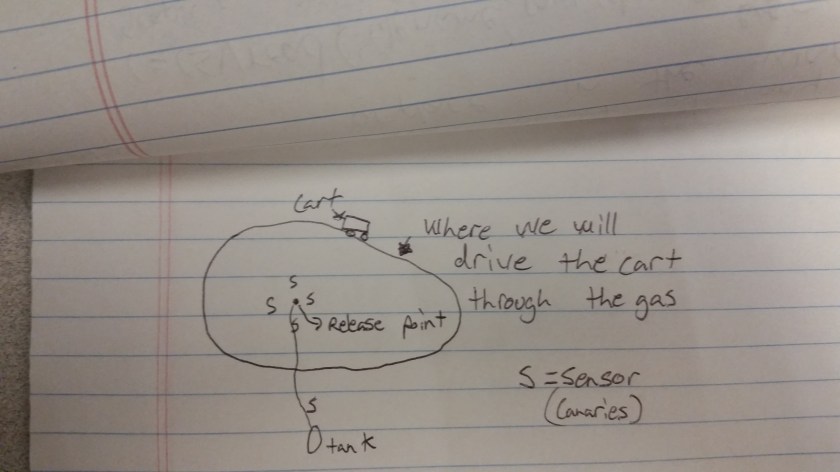 cart
where we will
drive the cart
through the gas
S
S
S
S
Release point
S = Sensor
(Canaries)
S
tank